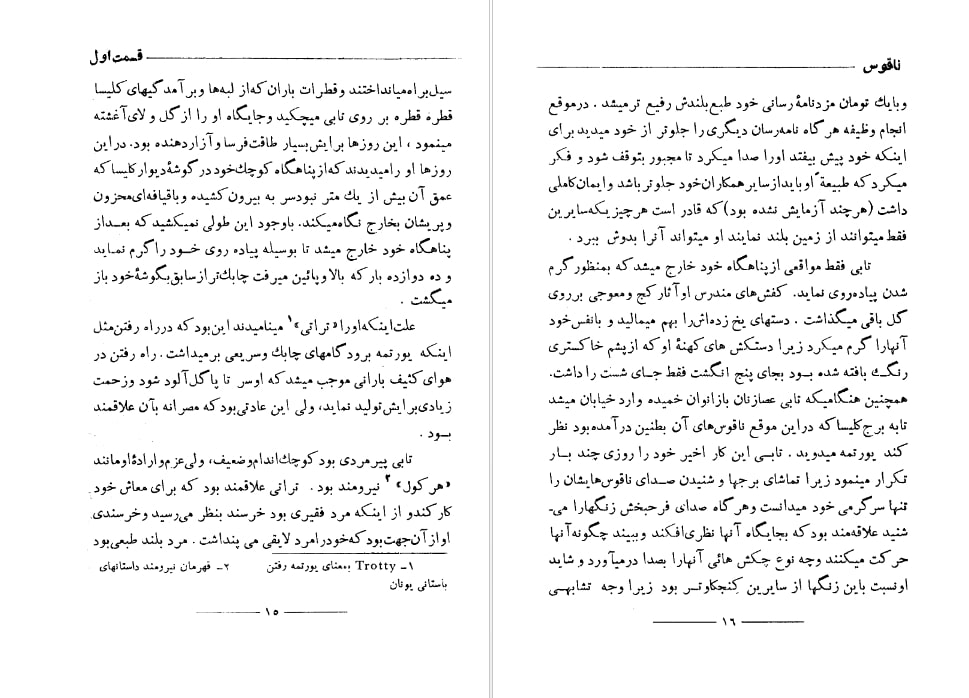 قسمت اول
سیل براه میانداختند و قطرات باران که از لبه‌ها و برآمدگیهای کلیسا
قطره قطره بر روی تابی میچکید و جایگاه او را از گل و لای آغشته
مینمود ، این روزها برایش بسیار طاقت فرسا و آزار دهنده بود. در این
روزها او را میدیدند که از پناهگاه کوچك خود در گوشهٔ دیوار کلیسا که
عمق آن بیش از یك متر نبود سر به بیرون کشیده و با قیافه‌ای محزون
و پریشان بخارج نگاه میکند. با وجود این طولی نمیکشید که بعد از
پناهگاه خود خارج میشد تا بوسیله پیاده روی خود را گرم نماید
و ده دوازده بار که بالا و پائین میرفت چابك‌تر از سابق بگوشهٔ خود باز
میگشت .
علت اینکه او را «تراتی»۱ مینامیدند این بود که در راه رفتن مثل
اینکه یورتمه برود گامهای چابك و سریعی برمیداشت. راه رفتن در
هوای کثیف بارانی موجب میشد که او سر تا پا گل آلود شود و زحمت
زیادی برایش تولید نماید، ولی این عادتی بود که مصرانه بآن علاقمند
بود .
تابی پیرمردی بود کوچك اندام و ضعیف، ولی عزم و ارادهٔ او مانند
«هرکول» ۲ نیرومند بود . تراتی علاقمند بود که برای معاش خود
کار کند و از اینکه مرد فقیری بود خرسند بنظر می‌رسید و خرسندی
او از آن جهت بود که خود را مرد لایقی می پنداشت . مرد بلند طبعی بود
۱- Trotty بمعنای یورتمه رفتن ۲- قهرمان نیرومند داستانهای
باستانی یونان
۱۵
ناقوس
و با یك تومان مزد نامهٔ رسانی خود طبع بلندش رفیع تر میشد . در موقع
انجام وظیفه هرگاه نامه‌رسان دیگری را جلوتر از خود میدید برای
اینکه خود پیش بیفتد او را صدا میکرد تا مجبور بتوقف شود و فکر
میکرد که طبیعةً او باید از سایر همکاران خود جلوتر باشد و ایمان کاملی
داشت (هرچند آزمایش نشده بود) که قادر است هر چیزیکه سایرین
فقط میتوانند از زمین بلند نمایند او میتواند آنرا بدوش ببرد .
تابی فقط مواقعی از پناهگاه خود خارج میشد که بمنظور گرم
شدن پیاده روی نماید. کفش‌های مندرس او آثار کج و معوجی بر روی
گل باقی میگذاشت . دستهای یخ زده‌اش را بهم میمالید و با نفس خود
آنها را گرم میکرد زیرا دستکش های کهنهٔ او که از پشم خاکستری
رنگ بافته شده بود بجای پنج انگشت فقط جای شست را داشت.
همچنین هنگامیکه تابی عصازنان با زانوان خمیده وارد خیابان میشد
تا به برج کلیسا که در این موقع ناقوس‌های آن بطنین درآمده بود نظر
کند یورتمه میدوید . تابی این کار اخیر خود را روزی چند بار
تکرار مینمود زیرا تماشای برجها و شنیدن صدای ناقوس‌هایشان را
تنها سرگرمی خود میدانست و هرگاه صدای فرحبخش زنگها را می-
شنید علاقه‌مند بود که بجایگاه آنها نظری افکند و ببیند چگونه آنها
حرکت میکنند و چه نوع چکش هائی آنها را بصدا درمیآورد و شاید
او نسبت باین زنگها از سایرین کنجکاوتر بود زیرا وجه تشابهی
۱۶